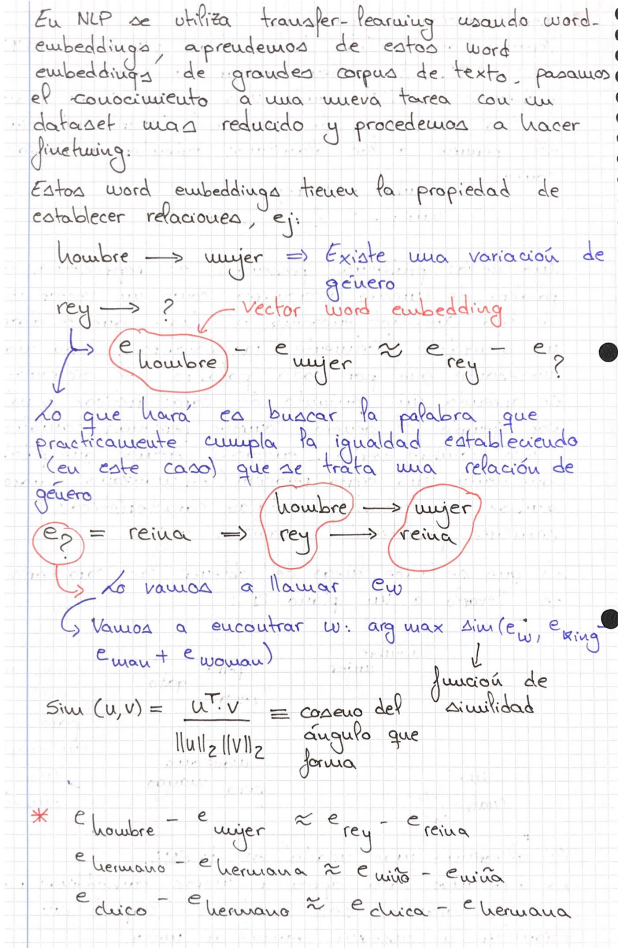 En NLP se utiliza transfer-learning usando word-
embeddings, aprendemos de estos word
embeddings de grandes corpus de texto, pasamos
el conocimiento a una nueva tarea con un
dataset mas reducido y procedemos a hacer
finetuning.
Estos word embeddings tienen la propiedad de
establecer relaciones, ej:
hombre → mujer ⇒ Existe una variación de
género
rey → ? vector word embedding
e hombre - e mujer ≈ e rey - e ?
Lo que hará es buscar la palabra que
practicamente cumpla la igualdad estableciendo
(en este caso) que se trata una relación de
género
hombre → mujer
e? = reina ⇒ rey → reina
Lo vamos a llamar ew
Vamos a encontrar w: arg max sim(ew, eking-
eman + ewoman)
función de
similidad
Sim (u,v) = uᵀ·v / ||u||₂ ||v||₂ ≡ coseno del
ángulo que
forma
* e hombre - e mujer ≈ e rey - e reina
e hermano - e hermana ≈ e niño - e niña
e chico - e hermano ≈ e chica - e hermana